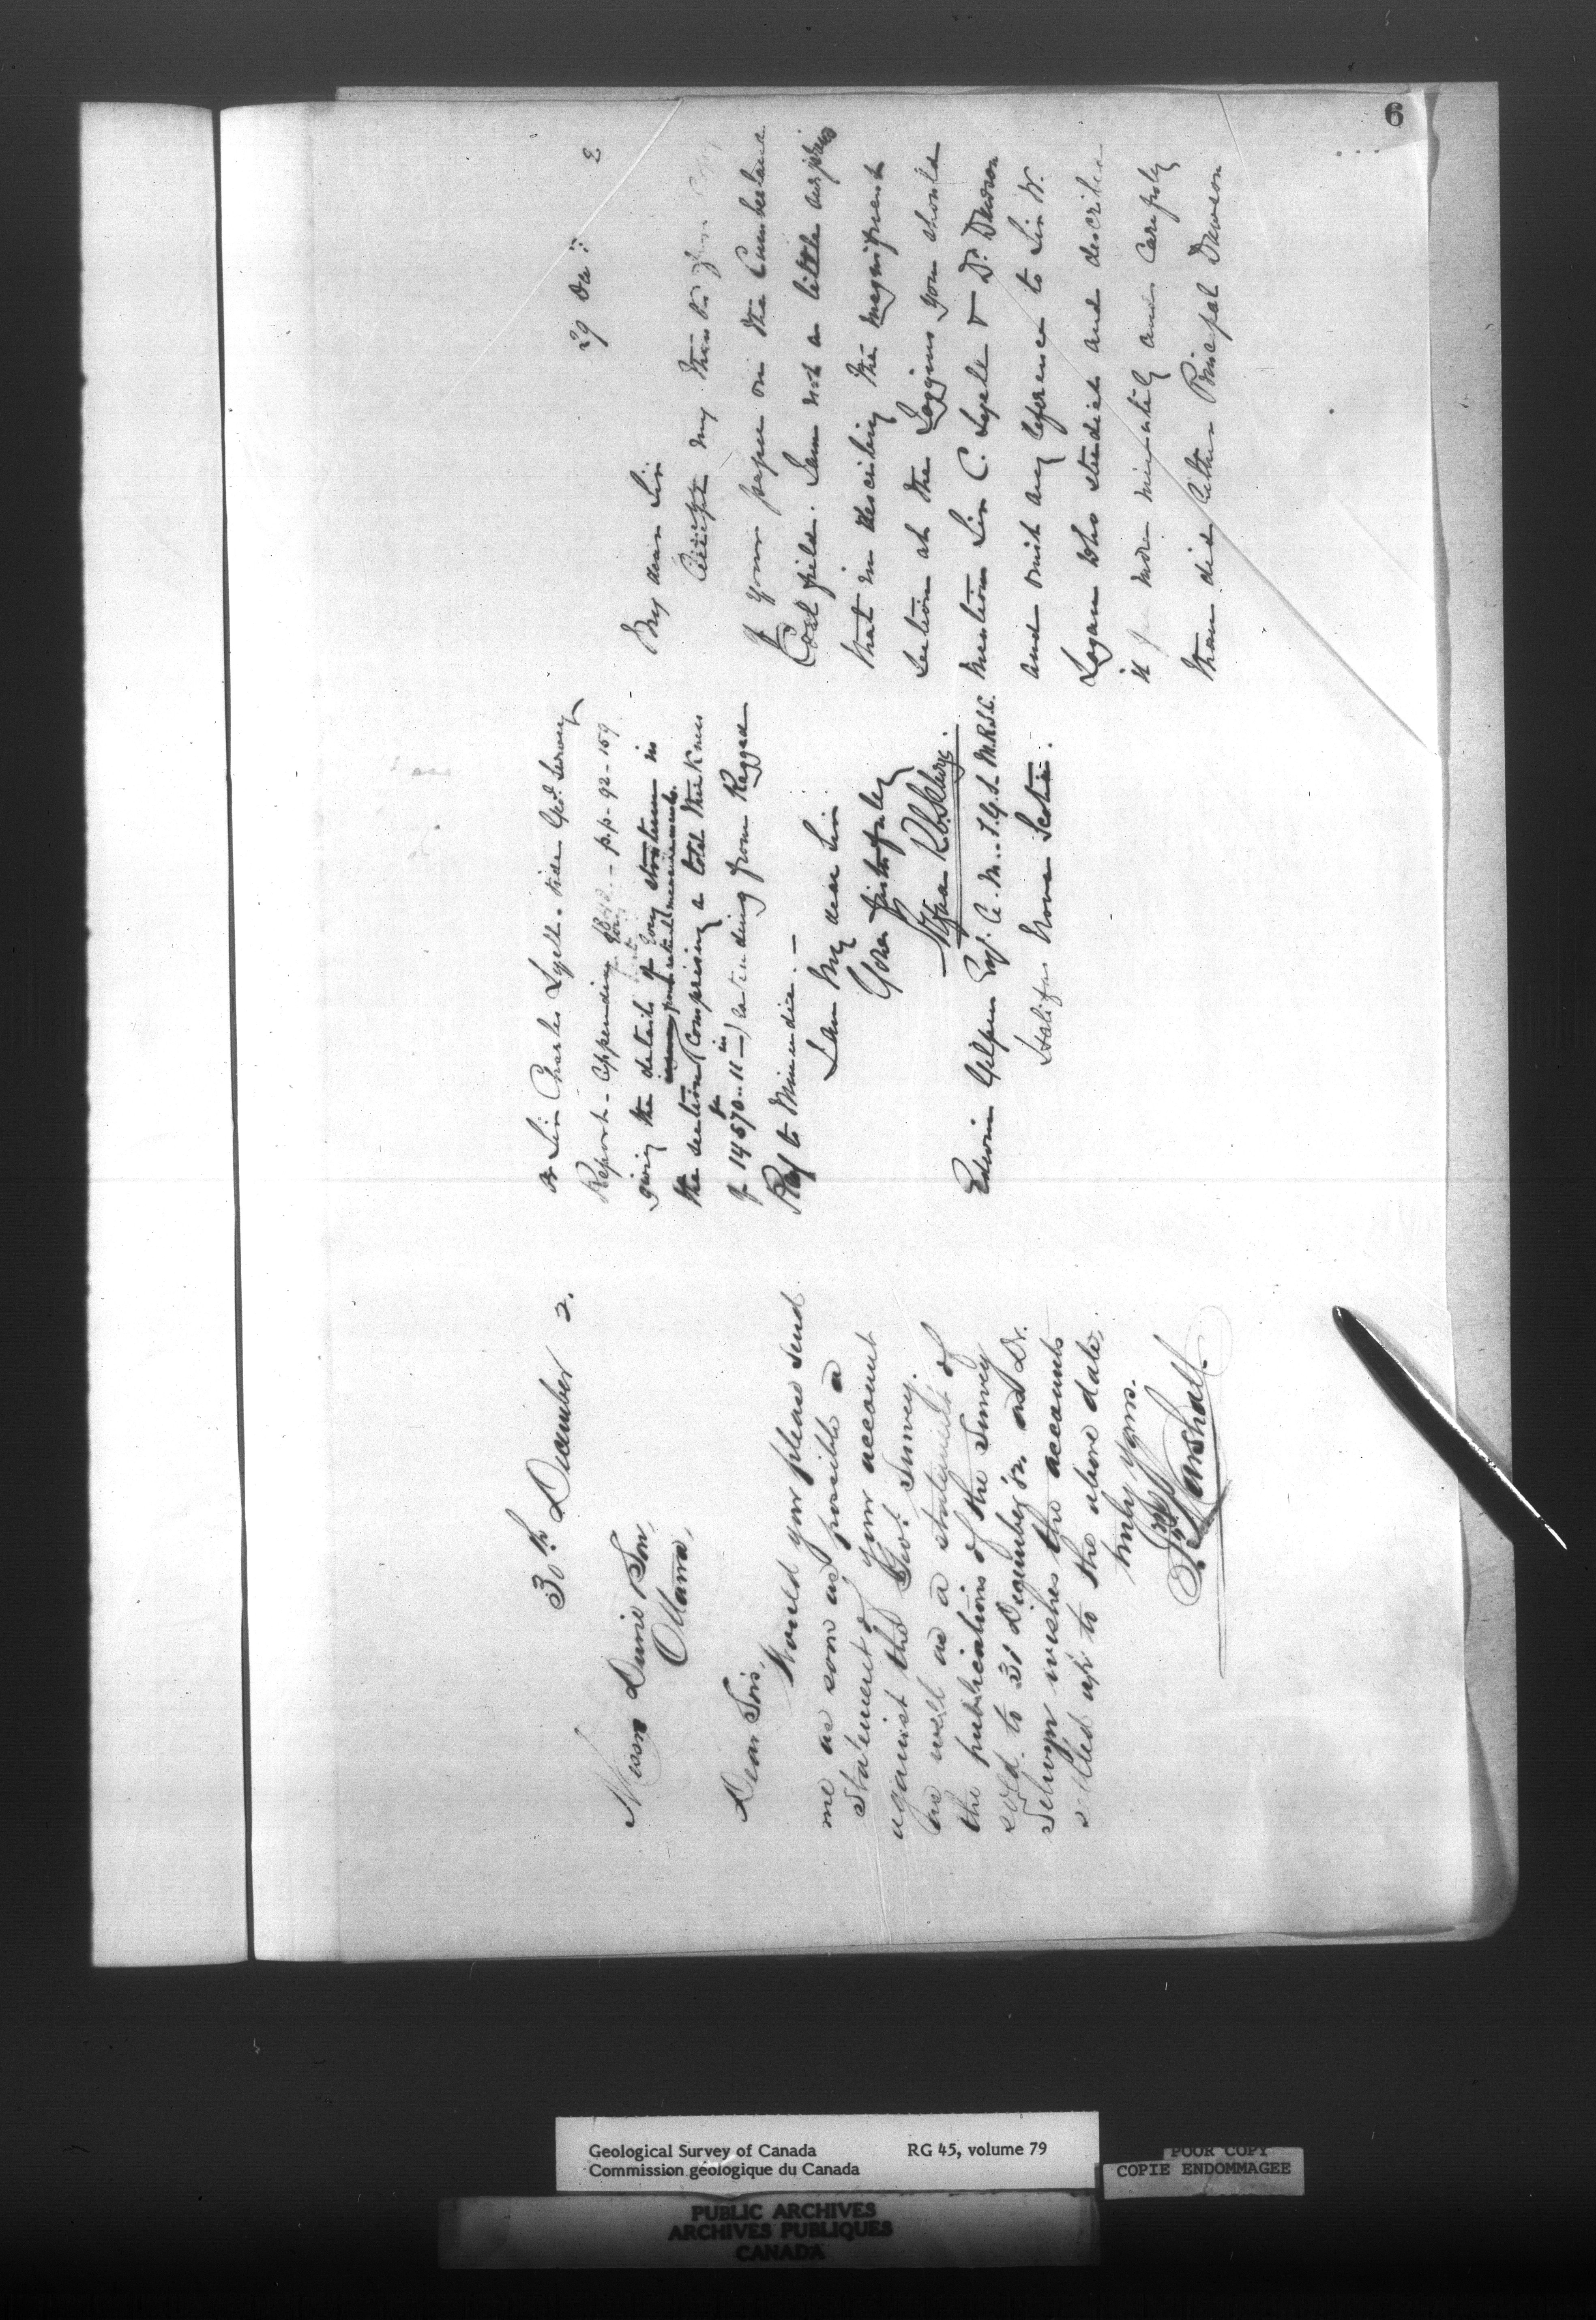 6
30th December 2.
Messrs Durie & Son,
Ottawa,
Dear Sirs,
Would you please send
me as soon as possible a
Statement of your account
against the Geol Survey.
as well as a statement of
the publications of the Survey
sold to 31 December in as Dr.
Selwyn wishes the accounts
settled up to the above date,
truly yours.
Marshall
29 Dec 2
My dear Sir
Accept my thanks for
of your paper on the Cumberland
Coal field. I am not a little surprised
that in describing the magnificent
section at the Joggins you should
mention Sir C. Lyell & Dr Dawson
and omit any reference to Sir W.
Logan who studied and described
it far more minutely and carefully
than did either Principal Dawson
or Sir Charles Lyell. vide Geol. Survey
Report - Appendix - p.p- 92-159
giving the details of every stratum in
the section (Comprising a total thickness
of 14570 ft 11 in) extending from Ragged
Reef to Minudie. -
I am My dear Sir
Yours faithfully
Edwin Gilpin Esq. A.M. F.G.S. M.R.S.C.
Halifax Nova Scotia.
Geological Survey of Canada RG 45, volume 79
Commission géologique du Canada
POOR COPY
COPIE ENDOMMAGEE
PUBLIC ARCHIVES
ARCHIVES PUBLIQUES
CANADA